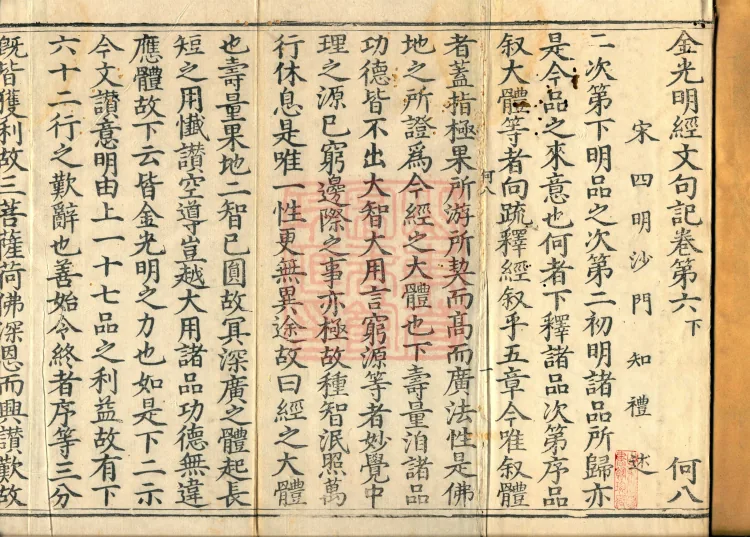 金光明經文句記卷第六下 何八
宋四明沙門知禮述
二次第下明品之次第二初明諸品所歸亦
是今品之來意也何者下釋諸品次第序品
叙大體等者向疏釋經叙乎五章今唯叙體
何八 一
者蓋指極果所游所契而高而廣法性是佛
地之所證爲今經之大體也下壽量洎諸品
功德皆不出大智大用言窮源等者妙覺中
理之源已窮邊際之事亦極故種智泯照萬
行休息是唯一性更無異途故曰經之大體
也壽量果地二智已圓故冥深廣之體起長
短之用懺讃空導豈越大用諸品功德無違
應體故下云皆金光明之力也如是下二示
今文讃意明由上一十七品之利益故有下
六十二行之歎辭也善始令終者序等三分
旣皆獲利故三菩薩荷佛深恩而興讃歎故